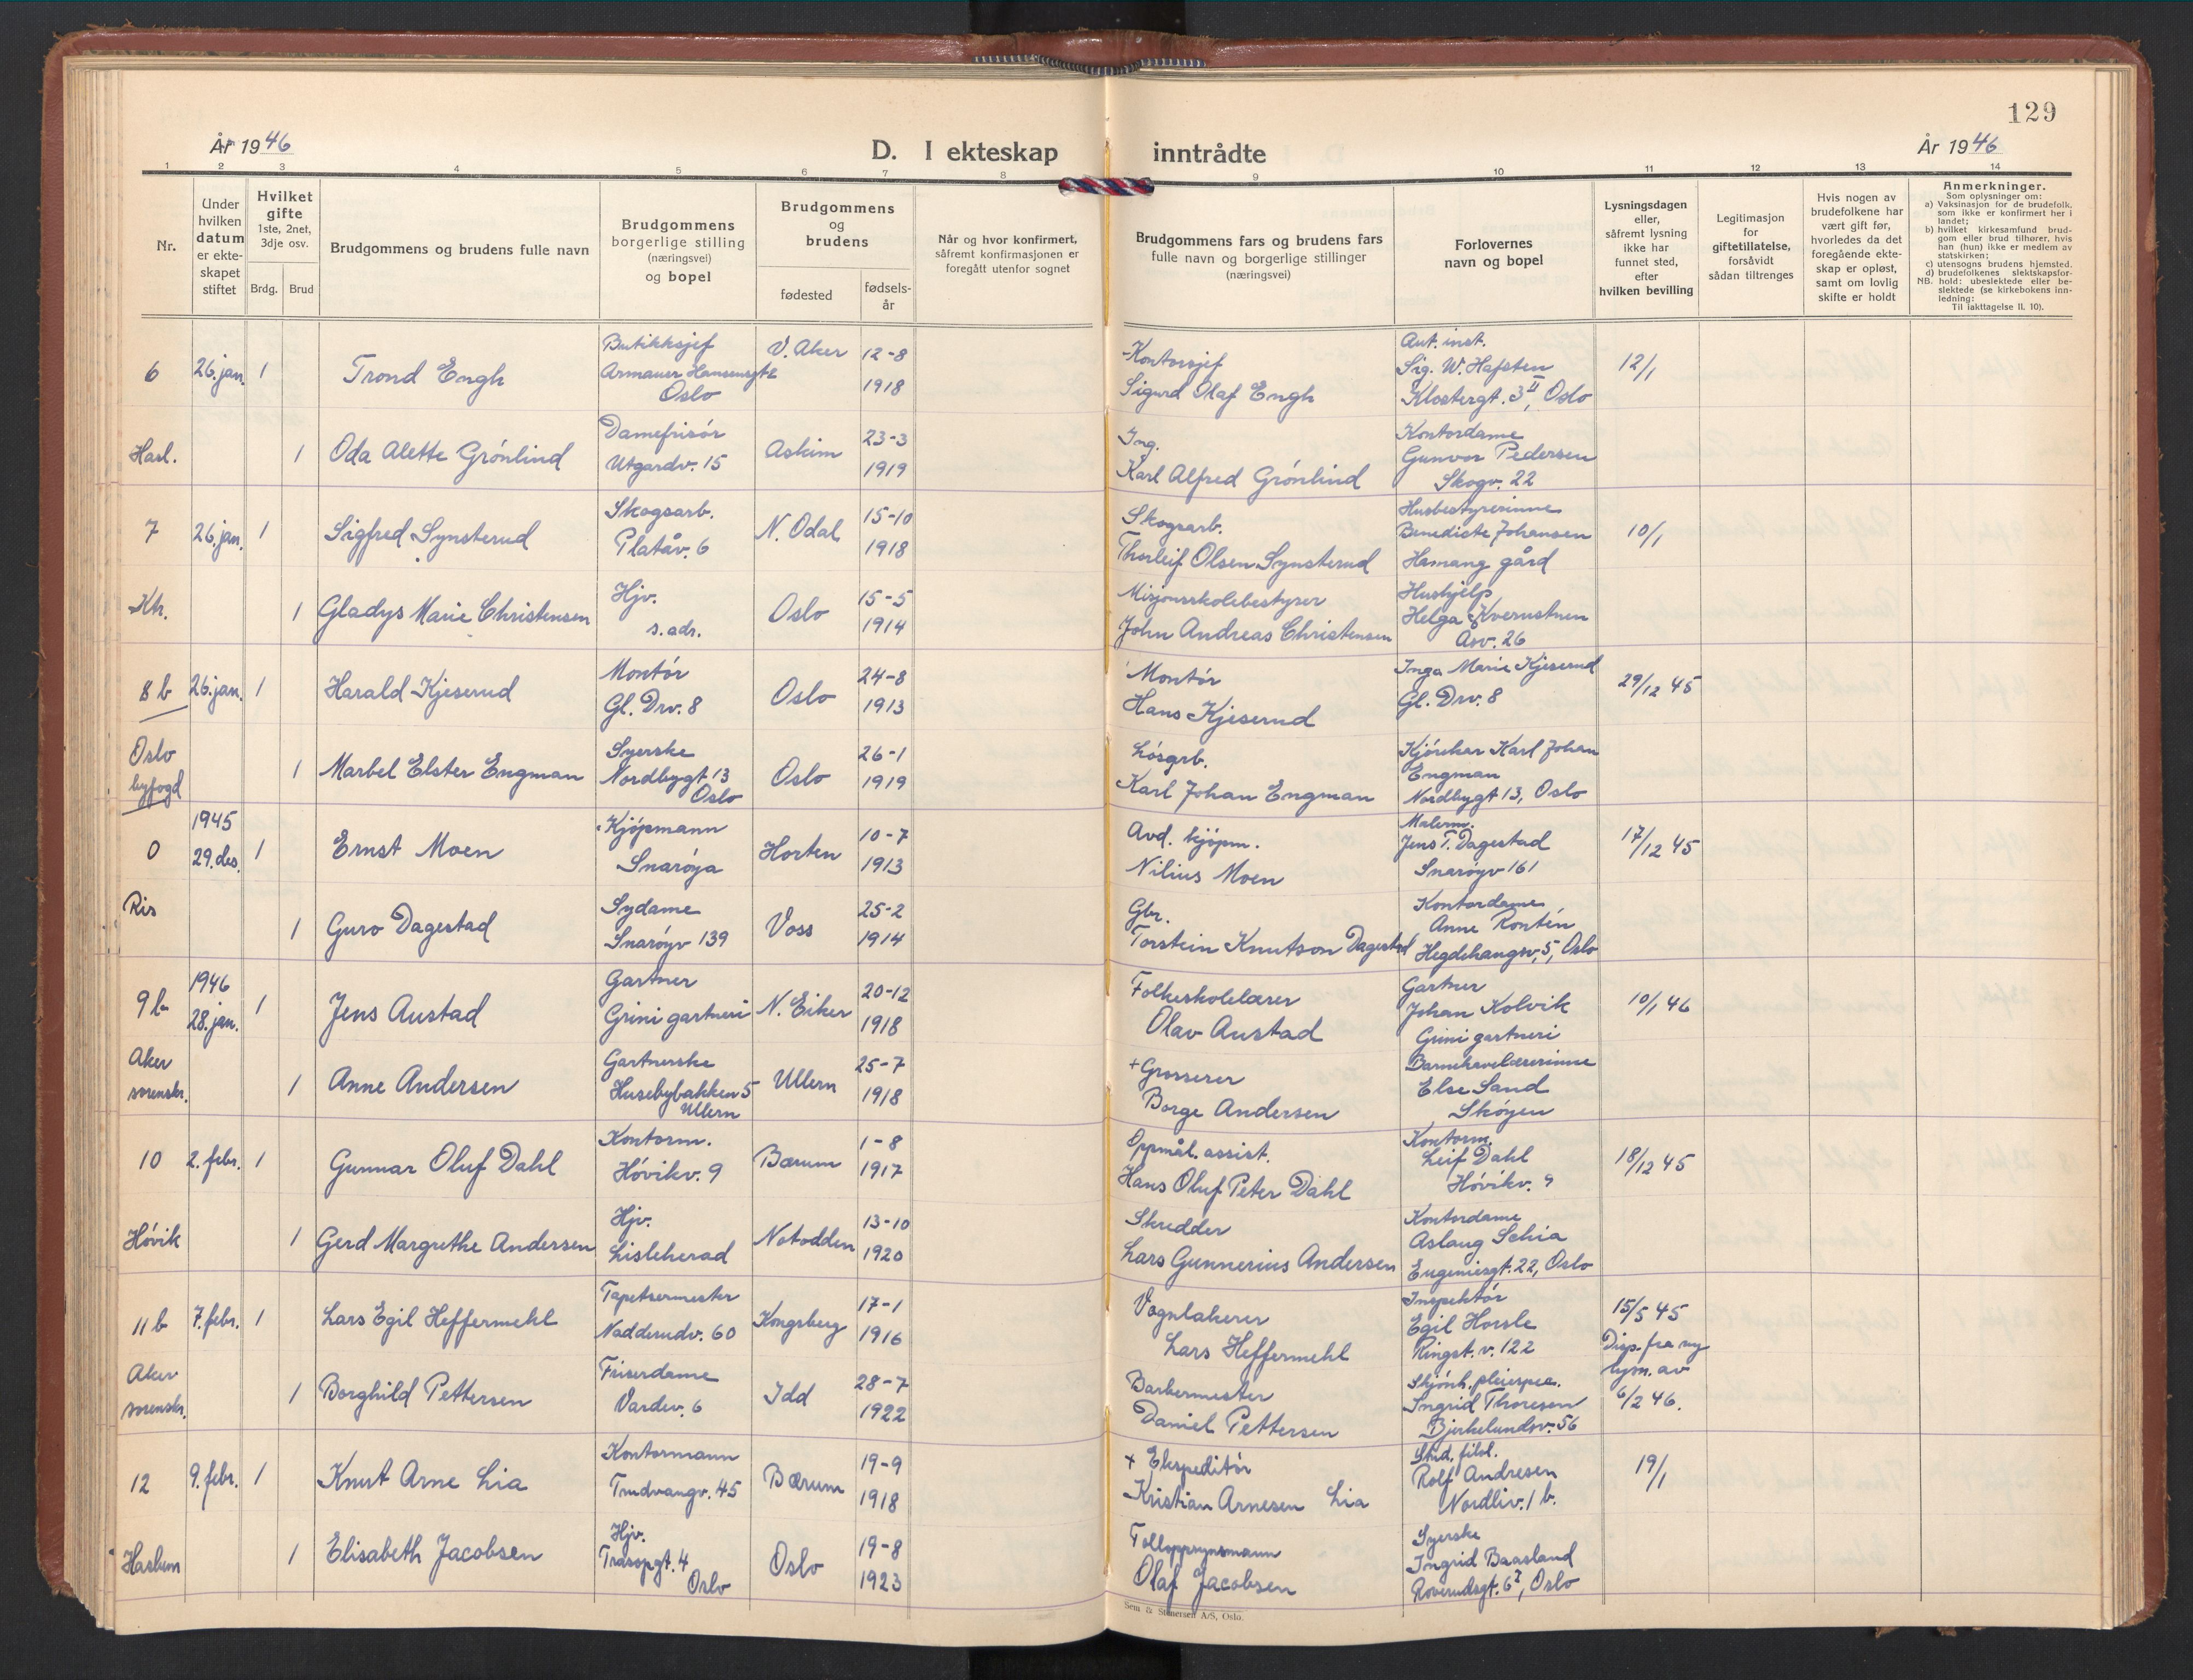 129
År 1946
D. I ekteskap inntrådte
År 1946
1 2 3 4 5 6 7 8 9 10 11 12 13 14
Nr.
Under hvilken datum er ekte-skapet stiftet
Hvilket gifte 1ste, 2net, 3dje osv.
Brdg. Brud
Brudgommens og brudens fulle navn
Brudgommens borgerlige stilling (næringsvei) og bopel
Brudgommens og brudens
fødested
fødsels-år
Når og hvor konfirmert, såfremt konfirmasjonen er foregått utenfor sognet
Brudgommens fars og brudens fars fulle navn og borgerlige stillinger (næringsvei)
Forlovernes navn og bopel
Lysningsdagen eller, såfremt lysning ikke har funnet sted, efter hvilken bevilling
Legitimasjon for giftetillatelse, forsåvidt sådan tiltrenges
Hvis nogen av brudefolkene har vært gift før, hvorledes da det foregående ekte-skap er opløst, samt om lovlig skifte er holdt
Anmerkninger.
Som oplysninger om:
a) Vaksinasjon for de brudefolk, som ikke er konfirmert her i landet;
b) hvilket kirkesamfund brud-gom eller brud tilhører, hvis han (hun) ikke er medlem av statskirken;
c) utensogns brudens hjemsted.
d) brudefolkenes slektskapsfor-hold: ubeslektede eller be-slektede (se kirkebokens inn-ledning:
NB. Til iakttagelse II. 10).
6 26. jan. 1 Trond Engh
Butikksjef
Armauer Hansensgt 2
Oslo
V. Aker 12-8 1918
Kontorsjef
Sigurd Olaf Engh
Aut. inst.
Sig. W. Hafsten
Klostergt. 3 II, Oslo
12/1
Hasl. 1 Oda Alette Grönlind
Damefrisör
Utgardv. 15
Askim 23-3 1919
Ing.
Karl Alfred Grönlind
Kontordame
Gunvor Pedersen
Skogv. 22
7 26. jan. 1 Sigfred Synsterud
Skogsarb.
Platåv. 6
N. Odal 15-10 1918
Skogsarb.
Thorleif Olsen Synsterud
Husbestyrerinne
Benedicte Johansen
Hamang gård
10/1
1 Gladys Marie Christensen
Hjv.
s. adr.
Oslo 15-5 1914
Misjonsskolebestyrer
John Andreas Christensen
Hushjelp
Helga
Åsv. 26
8 b 26. jan. 1 Harald Kjeserud
Montör
Gl. Drv. 8
Oslo 24-8 1913
Montör
Hans Kjeserud
Inga Marie Kjeserud
Gl. Drv. 8
29/12 45
Oslo byfogd 1 Marbel Elster Engman
Syerske
Nordbygt 13
Oslo
Oslo 26-1 1919
Lösarb.
Karl Johan Engman
Kjörekar Karl Johan
Engman
Nordbygt 13, Oslo
0 1945 29. des. 1 Ernst Moen
Kjöpmann
Snaröya
Horten 10-7 1913
Avd. kjöpm.
Nilius Moen
Malerm.
Jens T. Dagestad
Snaröyv 161
17/12 45
Ris 1 Guro Dagestad
Sydame
Snaröyv 139
Voss 25-2 1914
Gbr.
Torstein Knutson Dagestad
Kontordame
Anne Rontén
Hegdehaugsv. 5, Oslo
9 b 1946 28. jan. 1 Jens Austad
Gartner
Grini gartneri
N. Eiker 20-12 1918
Folkeskolelærer
Olav Austad
Gartner
Johan Kolvik
Grini gartneri
10/1 46
Aker sorenskr. 1 Anne Andersen
Gartnerske
Husebybakken 5
Ullern
Ullern 25-7 1918
+ Grosserer
Borge Andersen
Barnehavelærerinne
Else Sand
Sköyen
10 2. febr. 1 Gunnar Oluf Dahl
Kontorm.
Hövikv. 9
Bærum 1-8 1917
Oppmål. assist.
Hans Oluf Peter Dahl
Kontorm.
Leif Dahl
Hövikv. 9
18/12 45
Hövik 1 Gerd Margrethe Andersen
Hjv.
Lisleherad
Notodden 13-10 1920
Skredder
Lars Gunnerius Andersen
Kontordame
Aslaug Schia
Eugeniesgt. 22, Oslo
11 b 7. febr. 1 Lars Egil Heffermehl
Tapetsermester
Nadderudv. 60
Kongsberg 17-1 1916
Vognlakerer
Lars Heffermehl
Inspektör
Egil Horsle
Ringst. v. 122
15/5 45
Disp. fra ny
lysn. av
6/2 46.
Aker sorenskr. 1 Borghild Pettersen
Friserdame
Vardev. 6
Idd 28-7 1922
Barbermester
Daniel Pettersen
Skjönh. pleiespes.
Ingrid Thoresen
Bjerkelundsv. 56
12 9. febr. 1 Knut Arne Lia
Kontormann
Trudvangv. 45
Bærum 19-9 1918
+ Ekspeditör
Kristian Arnesen Lia
Stud. filol.
Rolf Andresen
Nordliv. 1 b.
19/1
Haslum 1 Elisabeth Jacobsen
Hjv.
Trasopgt. 4
Oslo
Oslo 19-8 1923
Tolloppsynsmann
Olaf Jacobsen
Syerske
Ingrid Baasland
Roverudsgt. 6, Oslo
Sem & Stenersen A/S, Oslo.